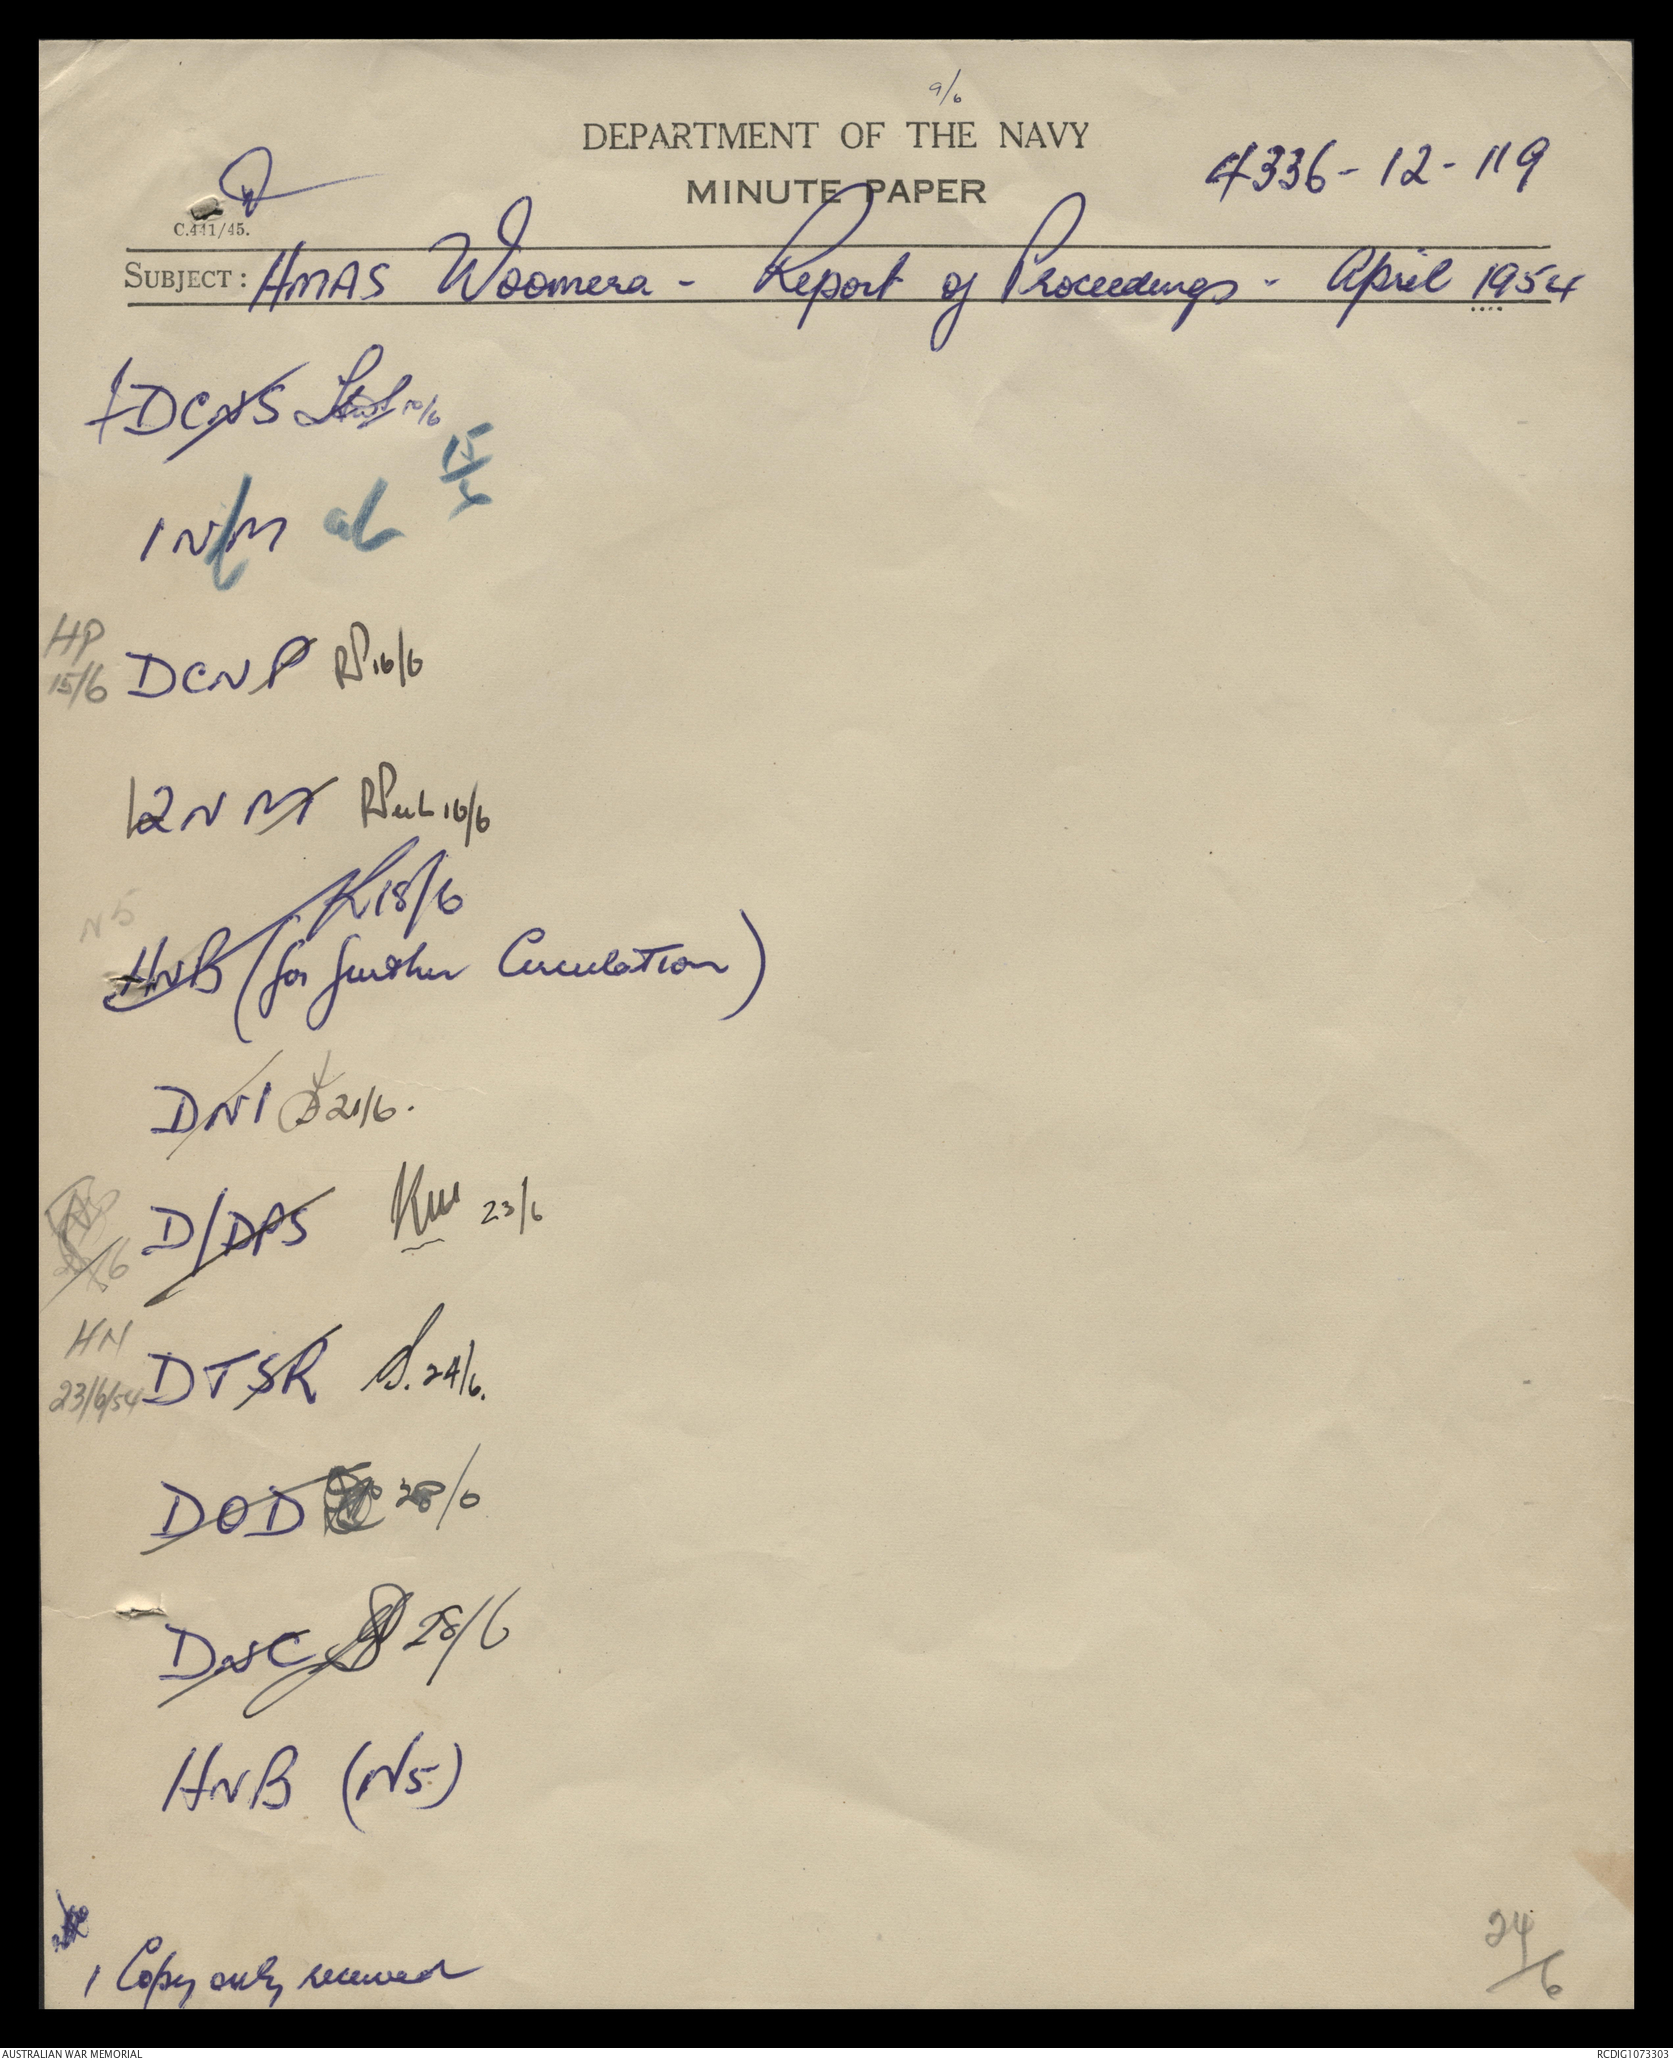 9/6
DEPARTMENT OF THE NAVY
MINUTE PAPER
4336-12-119
C.441/45.
SUBJECT: HMAS Woomera - Report of Proceedings - April 1954
DCNS 10/6
15/6
1NM
HP
15/6
DCNP 16/6
2NM 16/6
18/6
N5
HNB (for further Circulation)
DNI 21/6.
D/DPS 23/6
HN
23/6/54
DTSR 24/6.
DOD 28/6
DSC 28/6
HNB (N5)
1 Copy only received
24/6
AUSTRALIAN WAR MEMORIAL
RCDIG1073303